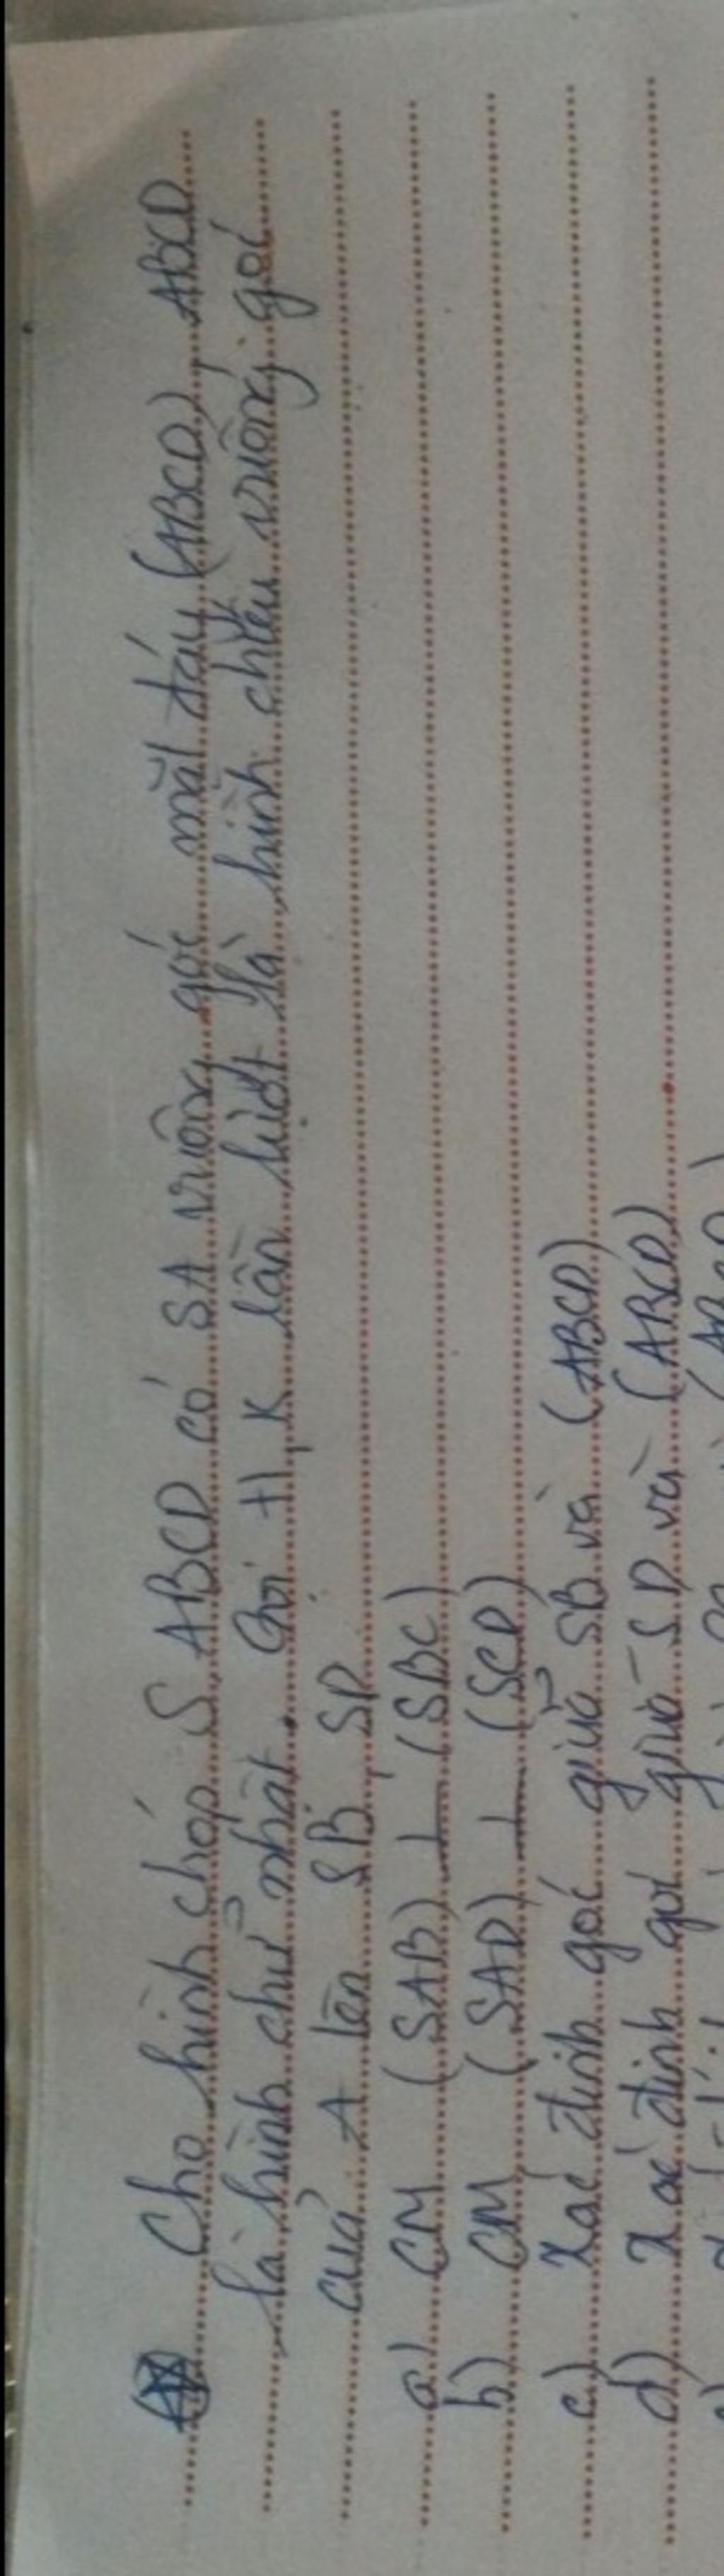 Cho hình chóp S.ABCD có SA vuông góc mặt đáy (ABCD), ABCD
là hình chữ nhật. Gọi H, K lần lượt là hình chiếu vuông góc
của A lên SB, SD
a) CM (SAB) ⊥ (SBC)
b) CM (SAD) ⊥ (SCD)
c) Xác định góc giữa SB và (ABCD)
d) Xác định góc giữa SD và (ABCD)